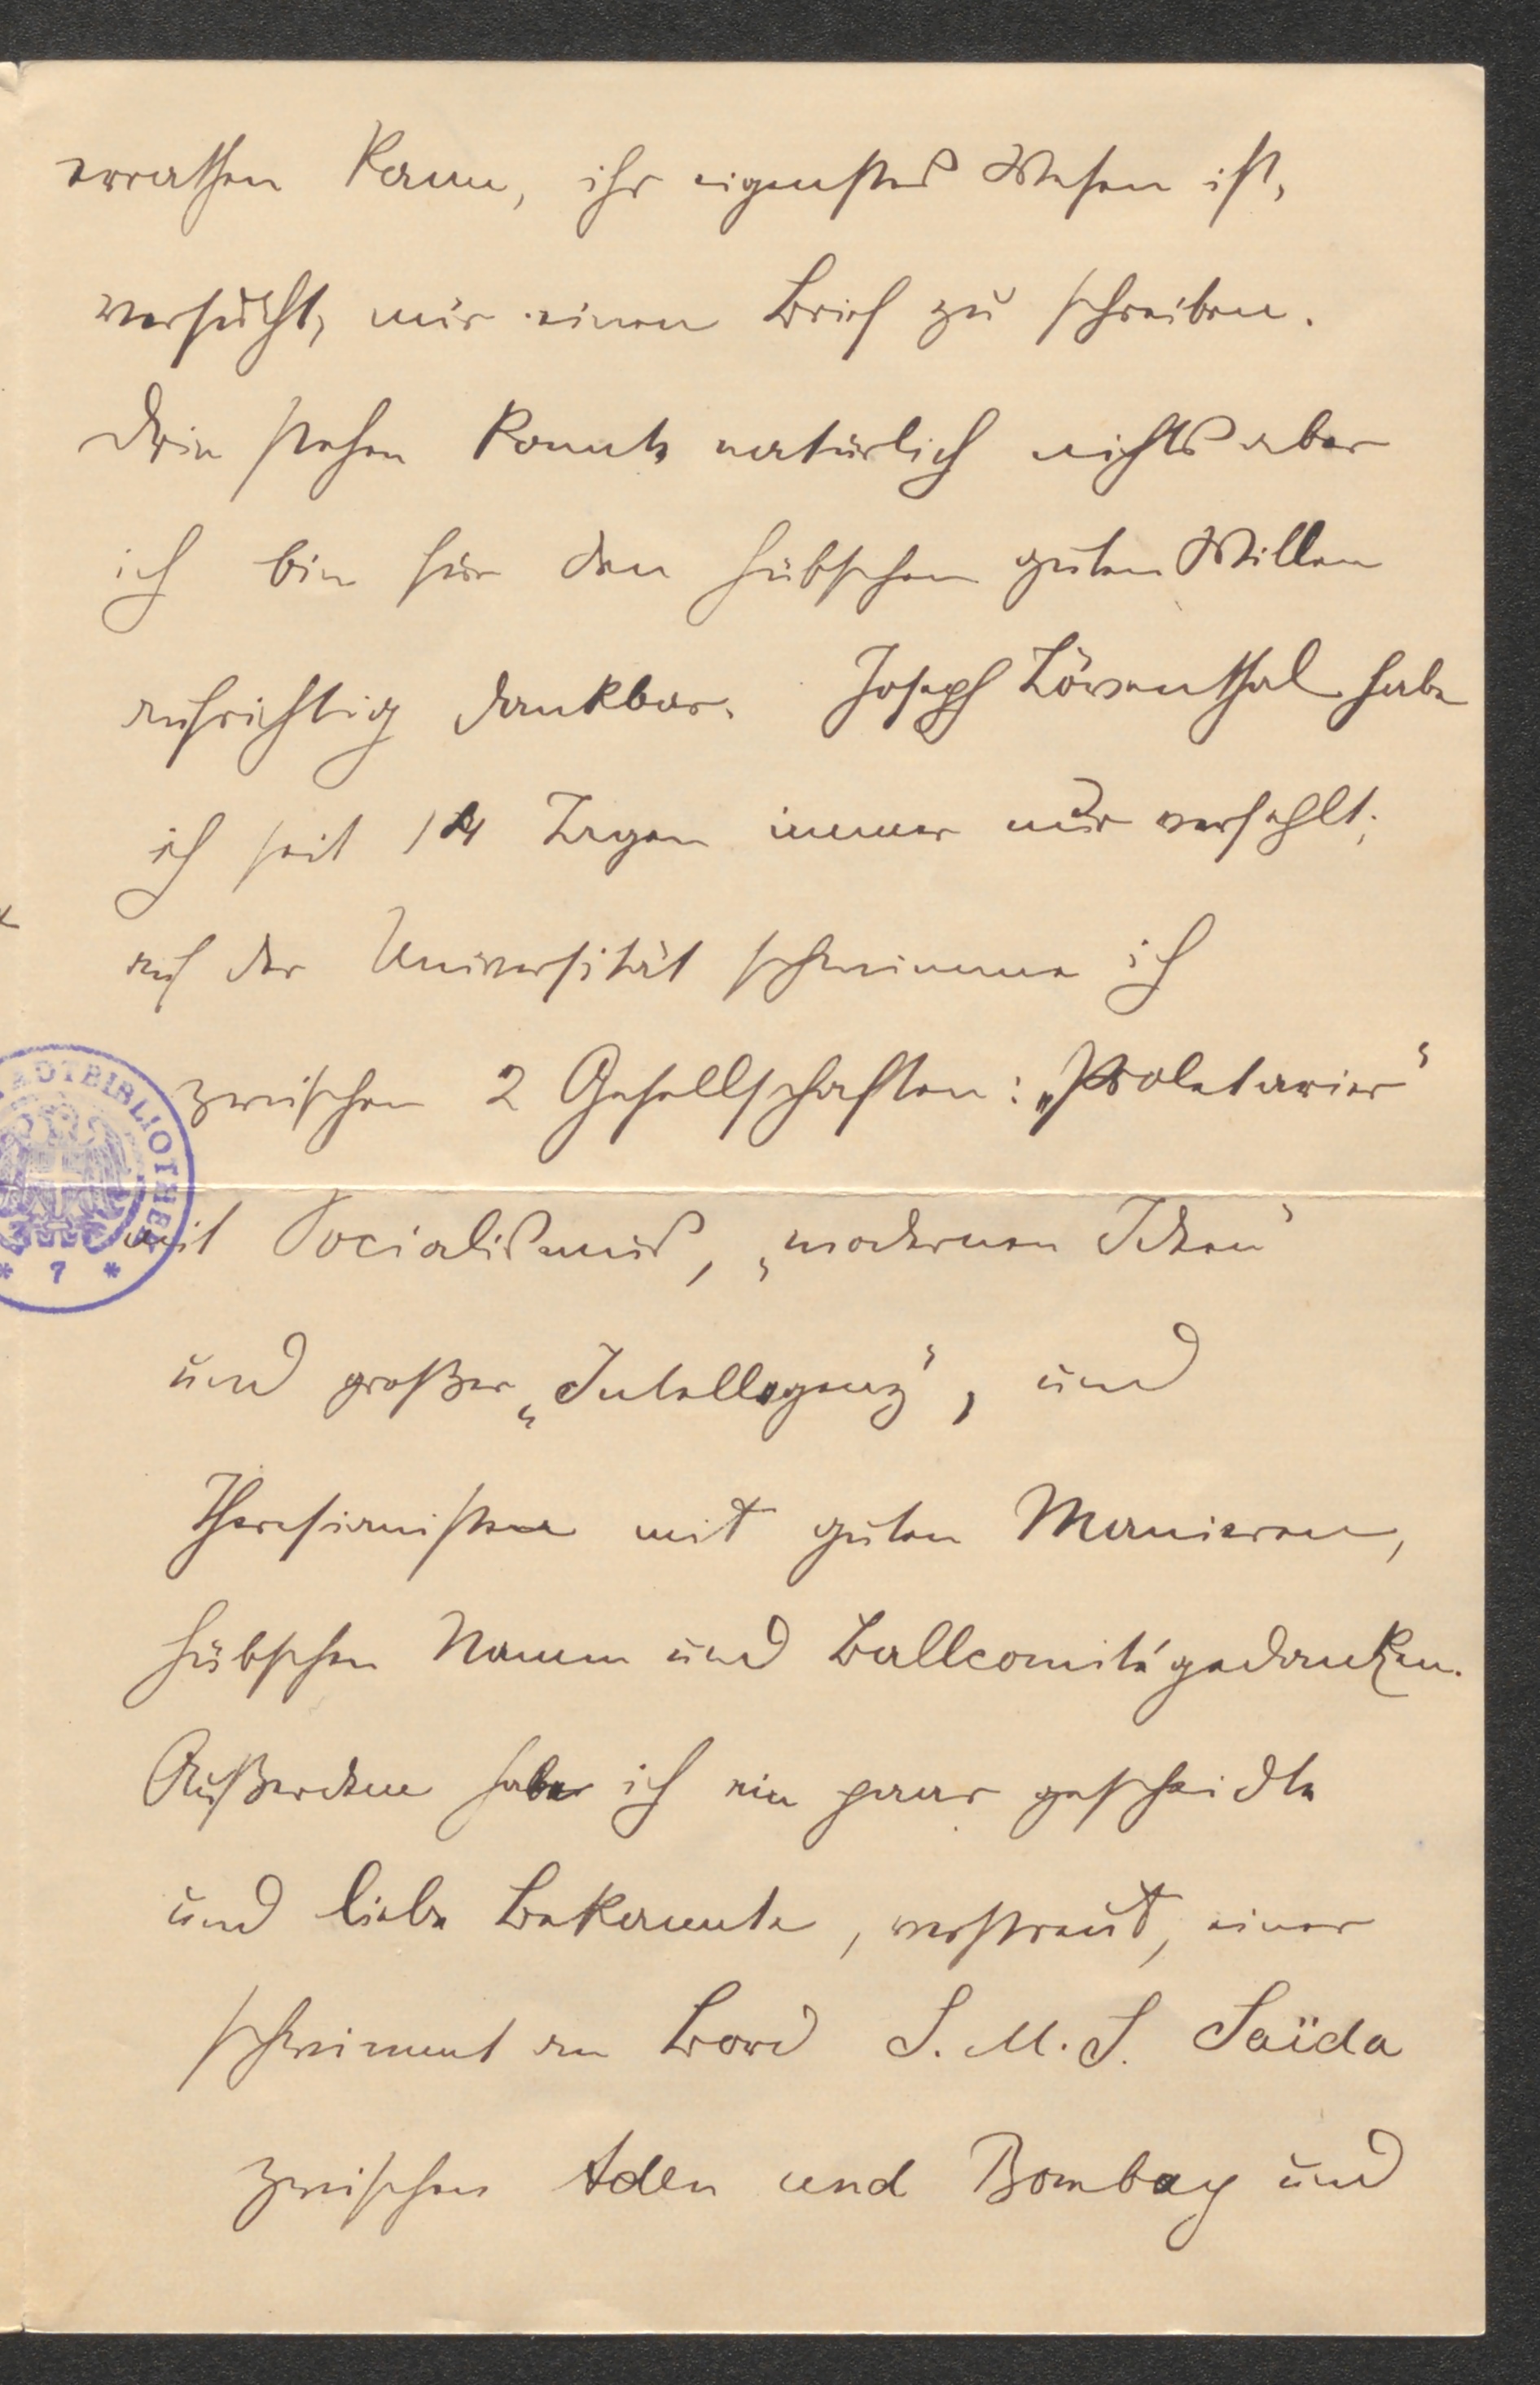 errathen kann, ihr eigenstes Wesen ist,
versucht, mir einen Brief zu schreiben.
Drin stehen konnte natürlich nichts aber
ich bin für den hübschen guten Willen
aufrichtig dankbar. Joseph Löwenthal habe
ich seit 14 Tagen immer nur verfehlt;
auf der Universität schwimme ich
zwischen 2 Gesellschaften: „Proletarier“
mit Socialismus, „modernen Ideen“
und großer „Intelligenz“, und
Theresianisten mit guten Manieren,
hübschen Namen und Ballcomitégedanken.
Außerdem habe ich ein paar gescheidte
und liebe Bekannte, verstreut, einer
schwimmt an Bord S. M. S. Saïda
zwischen Aden und Bombay und
STADTBIBLIOTHEK
* 7 *